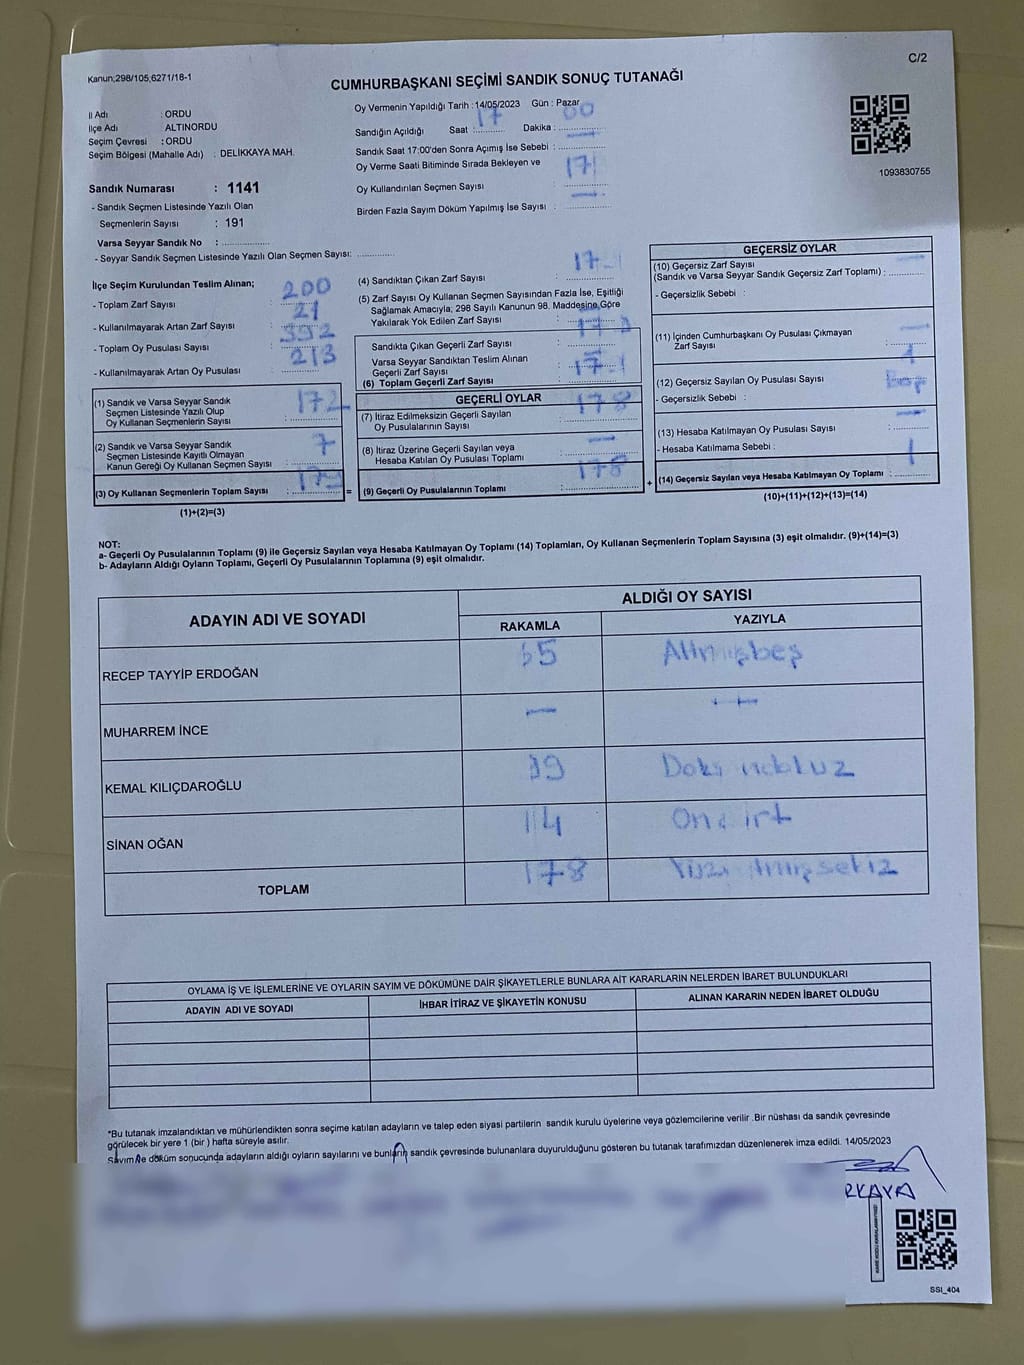 C/2
Kanun;298/105,6271/18-1
CUMHURBAŞKANI SEÇİMİ SANDIK SONUÇ TUTANAĞI
İl Adı : ORDU
İlçe Adı : ALTINORDU
Seçim Çevresi : ORDU
Seçim Bölgesi (Mahalle Adı) : DELİKKAYA MAH.
Sandık Numarası : 1141
- Sandık Seçmen Listesinde Yazılı Olan
Seçmenlerin Sayısı : 191
Varsa Seyyar Sandık No : ................
- Seyyar Sandık Seçmen Listesinde Yazılı Olan Seçmen Sayısı: ............
Oy Vermenin Yapıldığı Tarih : 14/05/2023 Gün : Pazar
Sandığın Açıldığı Saat : 17 Dakika : 00
Sandık Saat 17:00'den Sonra Açımış İse Sebebi : —
Oy Verme Saati Bitiminde Sırada Bekleyen ve
Oy Kullandırılan Seçmen Sayısı
Birden Fazla Sayım Döküm Yapılmış İse Sayısı : —
1093830755
İlçe Seçim Kurulundan Teslim Alınan;
- Toplam Zarf Sayısı : 200
- Kullanılmayarak Artan Zarf Sayısı : 21
- Toplam Oy Pusulası Sayısı : 392
- Kullanılmayarak Artan Oy Pusulası : 213
(1) Sandık ve Varsa Seyyar Sandık
Seçmen Listesinde Yazılı Olup
Oy Kullanan Seçmenlerin Sayısı : 172
(2) Sandık ve Varsa Seyyar Sandık
Seçmen Listesinde Kayıtlı Olmayan
Kanun Gereği Oy Kullanan Seçmen Sayısı : 7
(3) Oy Kullanan Seçmenlerin Toplam Sayısı : 179 =
(1)+(2)=(3)
(4) Sandıktan Çıkan Zarf Sayısı :
(5) Zarf Sayısı Oy Kullanan Seçmen Sayısından Fazla İse, Eşitliği
Sağlamak Amacıyla, 298 Sayılı Kanunun 98. Maddesine Göre
Yakılarak Yok Edilen Zarf Sayısı :
Sandıkta Çıkan Geçerli Zarf Sayısı :
Varsa Seyyar Sandıktan Teslim Alınan
Geçerli Zarf Sayısı : —
(6) Toplam Geçerli Zarf Sayısı :
GEÇERLİ OYLAR
(7) İtiraz Edilmeksizin Geçerli Sayılan
Oy Pusulalarının Sayısı : 178
(8) İtiraz Üzerine Geçerli Sayılan veya
Hesaba Katılan Oy Pusulası Toplamı : —
(9) Geçerli Oy Pusulalarının Toplamı : 178 +
GEÇERSİZ OYLAR
(10) Geçersiz Zarf Sayısı
(Sandık ve Varsa Seyyar Sandık Geçersiz Zarf Toplamı) : —
- Geçersizlik Sebebi :
(11) İçinden Cumhurbaşkanı Oy Pusulası Çıkmayan
Zarf Sayısı : —
(12) Geçersiz Sayılan Oy Pusulası Sayısı : 1
- Geçersizlik Sebebi : Boş
(13) Hesaba Katılmayan Oy Pusulası Sayısı : —
- Hesaba Katılmama Sebebi :
(14) Geçersiz Sayılan veya Hesaba Katılmayan Oy Toplamı : 1
(10)+(11)+(12)+(13)=(14)
NOT:
a- Geçerli Oy Pusulalarının Toplamı (9) ile Geçersiz Sayılan veya Hesaba Katılmayan Oy Toplamı (14) Toplamları, Oy Kullanan Seçmenlerin Toplam Sayısına (3) eşit olmalıdır. (9)+(14)=(3)
b- Adayların Aldığı Oyların Toplamı, Geçerli Oy Pusulalarının Toplamına (9) eşit olmalıdır.
ADAYIN ADI VE SOYADI ALDIĞI OY SAYISI
RAKAMLA YAZIYLA
RECEP TAYYİP ERDOĞAN 65 Altmışbeş
MUHARREM İNCE — —
KEMAL KILIÇDAROĞLU 99
SİNAN OĞAN 14
TOPLAM 178
OYLAMA İŞ VE İŞLEMLERİNE VE OYLARIN SAYIM VE DÖKÜMÜNE DAİR ŞİKAYETLERLE BUNLARA AİT KARARLARIN NELERDEN İBARET BULUNDUKLARI
ADAYIN ADI VE SOYADI İHBAR İTİRAZ VE ŞİKAYETİN KONUSU ALINAN KARARIN NEDEN İBARET OLDUĞU
*Bu tutanak imzalandıktan ve mühürlendikten sonra seçime katılan adayların ve talep eden siyasi partilerin sandık kurulu üyelerine veya gözlemcilerine verilir .Bir nüshası da sandık çevresinde
görülecek bir yere 1 (bir) hafta süreyle asılır.
Sayım ve döküm sonucunda adayların aldığı oyların sayılarını ve bunların sandık çevresinde bulunanlara duyurulduğunu gösteren bu tutanak tarafımızdan düzenlenerek imza edildi. 14/05/2023
RKAYA
SSI_404